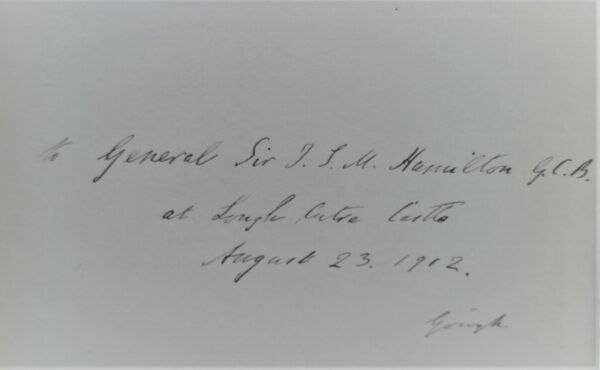 to General Sir I. S. M. Hamilton G.C.B.
at Lough Cutra Castle
August 23. 1912.
Gough